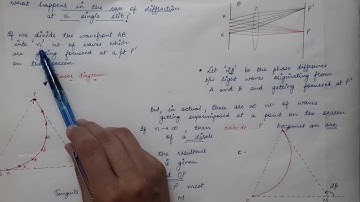 What happens in the case of diffraction
at a single slit?
If we divide the wavefront AB
into 'n' no of waves which
are being focused at a pt P'
on the screen
Phasor diagram
P
P'
• Let '2β' be the phase difference
b/w light waves originating from
A and B and getting focused at P'
but, in actual, there are ∞ no of waves
getting superimposed at a point on the screen
If n→∞, then
becomes an arc
of a circle
the resultant
is given
and OP
P meet
M
Tangents
2β